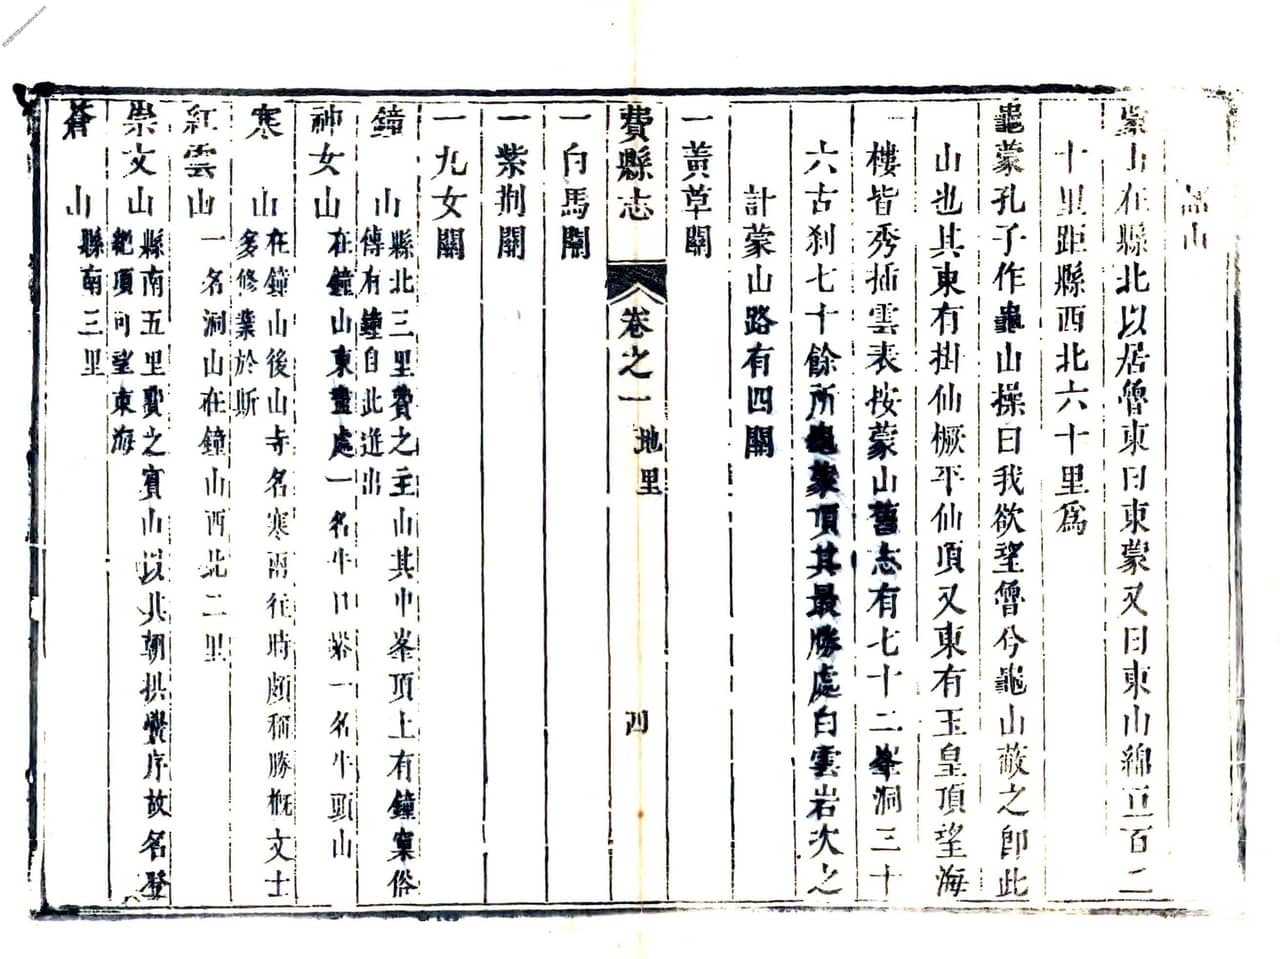 山
蒙山在縣北以居魯東曰東蒙又曰東山綿亘百二
十里距縣西北六十里爲
龜蒙孔子作龜山操曰我欲望魯兮龜山蔽之卽此
山也其東有掛仙橛平仙頂又東有玉皇頂望海
樓皆秀插雲表按蒙山舊志有七十二峯洞三十
六古刹七十餘所龜蒙頂其最勝處白雲岩次之
計蒙山路有四關
一黃草關
費縣志 卷之一 地里 四
一白馬關
一紫荆關
一九女關
鐘山 縣北三里費之主山其中峯頂上有鐘窠俗
傳有鐘自此迸出
神女山 在鐘山東盡處一名牛口峪一名牛頭山
寒山 在鐘山後山寺名寒雨往時頗稱勝槪文士
多修業於斯
紅雲山 一名洞山在鐘山西北二里
崇文山 縣南五里費之賓山以其朝拱黌序故名登
絶頂可望東海
蒼山 縣南三里